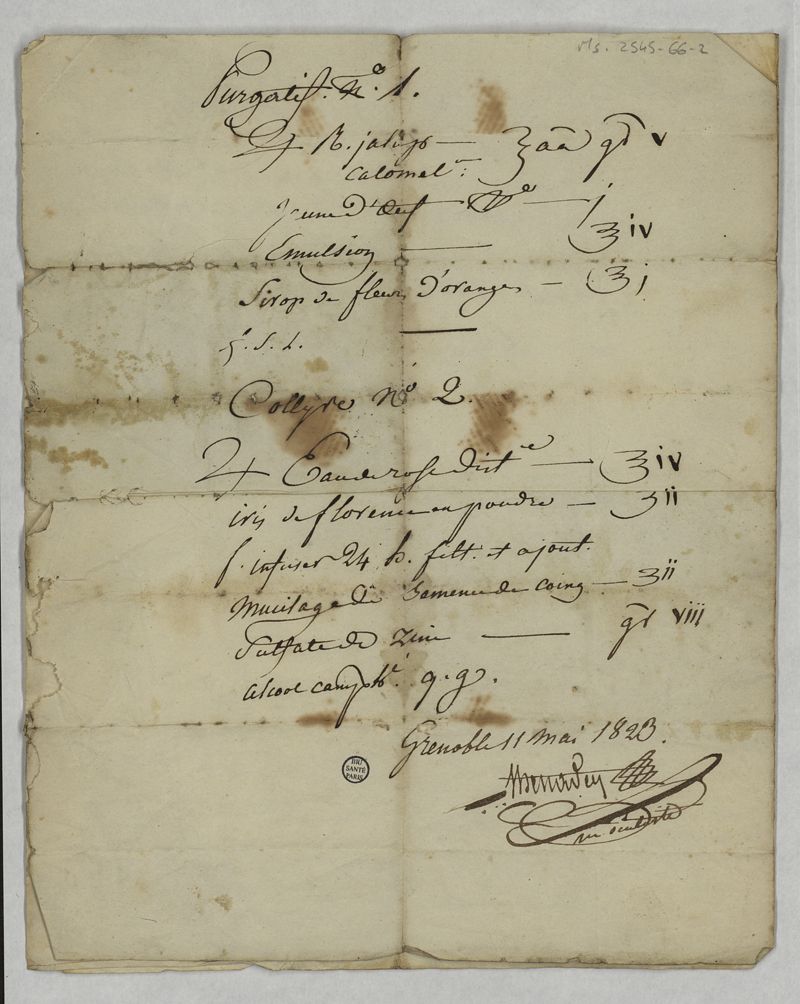 Ms. 2545-66-2
Purgatif. N.º 1.
♃ R. jalap — ʒ āā gr v
Calomel
Jaune d'Œuf — nº — j
Emulsion — ℥ iv
Sirop de fleurs d'oranges — ℥ j
f. S. L.
Collyre Nº 2.
♃ Eau de rose dist.ée — ℥ iv
iris de florence en poudre — ʒ ii
f. infuser 24 h. filt. et ajout.
Mucilage de Semence de coing — ʒ ii
Sulfate de Zinc — gr viii
Alcool camph.é q. g.
Grenoble 11 Mai 1823.
BIU
SANTÉ
PARIS